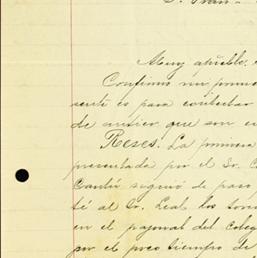 D. Fran
Muy apible.
Confirmo mi prime
sente es para contestar
de numero que son en
Reses. La primera
presentada por el Sr. C
Cantú segund de paso
té al Sr. Leal los
en el pajonal del coleg
por el poco tiempo de